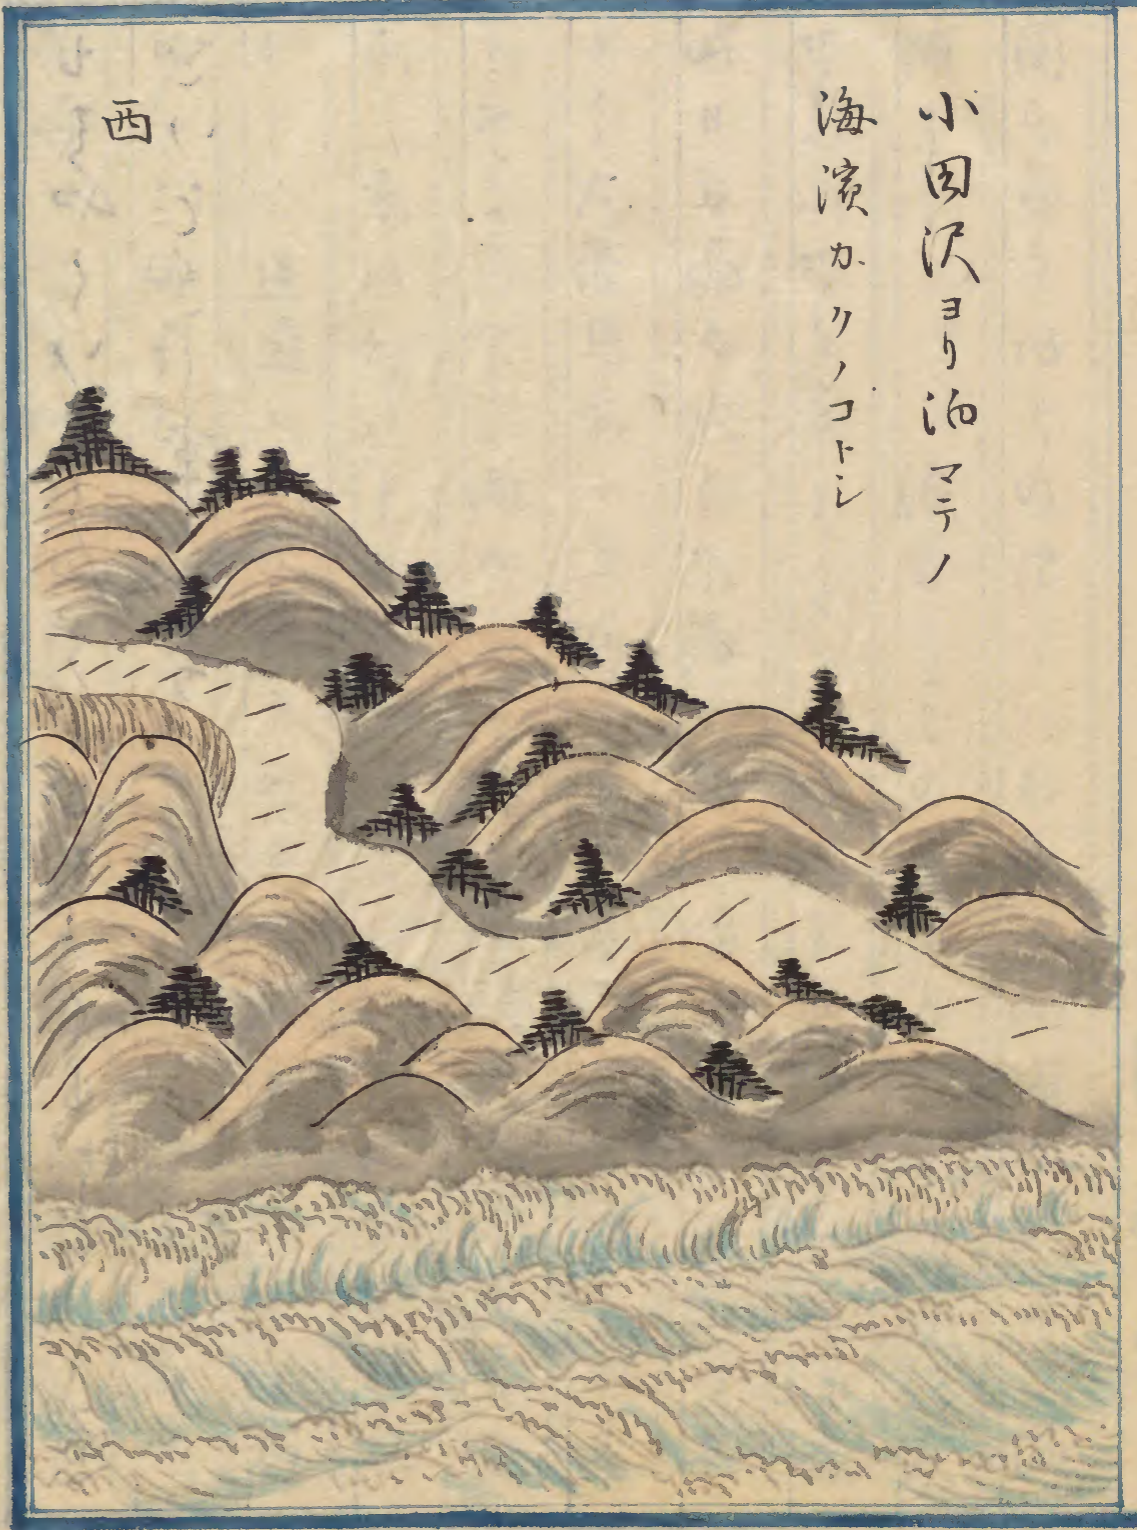 小田沢ヨリ泊マテノ
海濱カクノコトシ
西